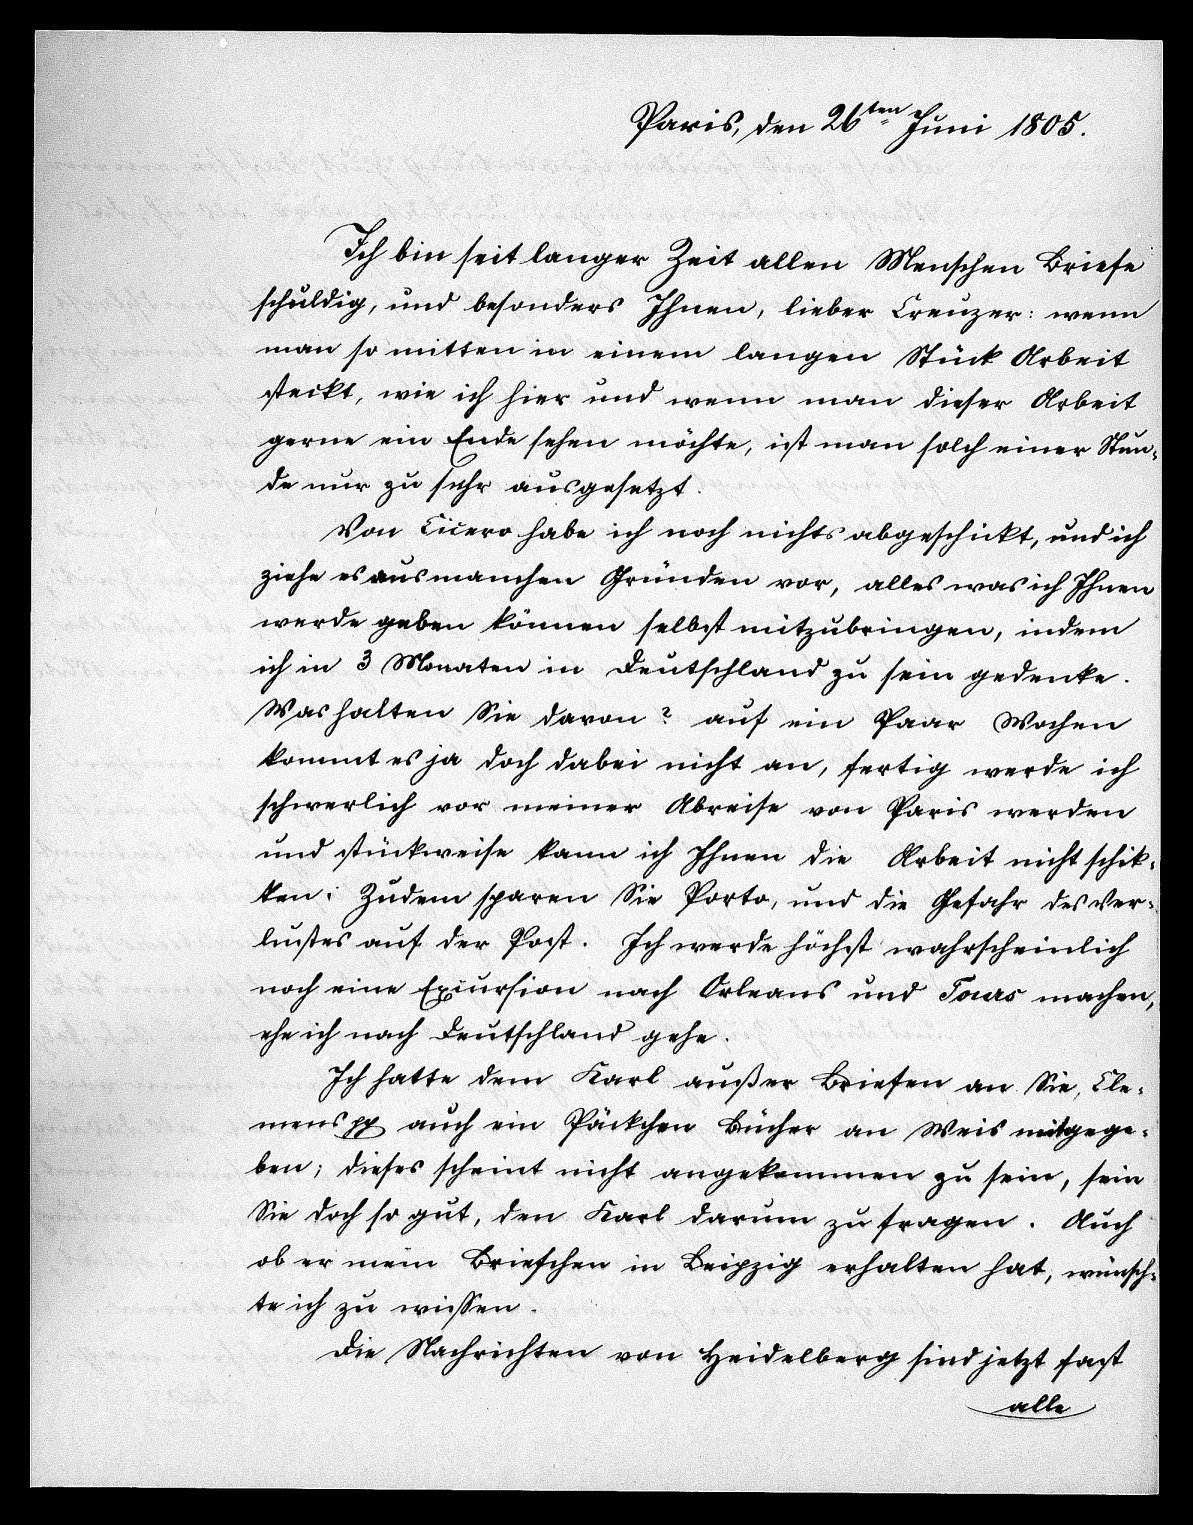 Paris, den 26ten Juni 1805.
Ich bin seit langer Zeit allen Menschen Briefe
schuldig, und besonders Ihnen, lieber Creuzer: wenn
man so mitten in einem langen Stück Arbeit
steckt, wie ich hier und wenn man dieser Arbeit
gerne ein Ende sehen möchte, ist man solch einer Stun-
de nur zu sehr ausgesetzt.
Von Cicero habe ich noch nichts abgeschickt, und ich
ziehe es aus manchen Gründen vor, alles was ich Ihnen
werde geben können selbst mitzubringen, indem
ich in 3 Monaten in Deutschland zu sein gedenke.
Was halten Sie davon? auf ein Paar Wochen
kommt es ja doch dabei nicht an, fertig werde ich
schwerlich vor meiner Abreise von Paris werden
und stückweise kann ich Ihnen die Arbeit nicht schik-
ken: Zudem sparen Sie Porto, und die Gefahr des Ver-
lustes auf der Post. Ich werde höchst wahrscheinlich
noch eine Excursion nach Orleans und Tours machen,
ehe ich nach Deutschland gehe.
Ich hatte dem Karl außer Briefen an Sie, Cle-
mens pp auch ein Päckchen Bücher an Weis mitgege-
ben; dieses scheint nicht angekommen zu sein, sein
Sie doch so gut, den Karl darum zu fragen. Auch
ob er mein Briefchen in Leipzig erhalten hat, wünsch-
te ich zu wissen.
Die Nachrichten von Heidelberg sind jetzt fast
alle